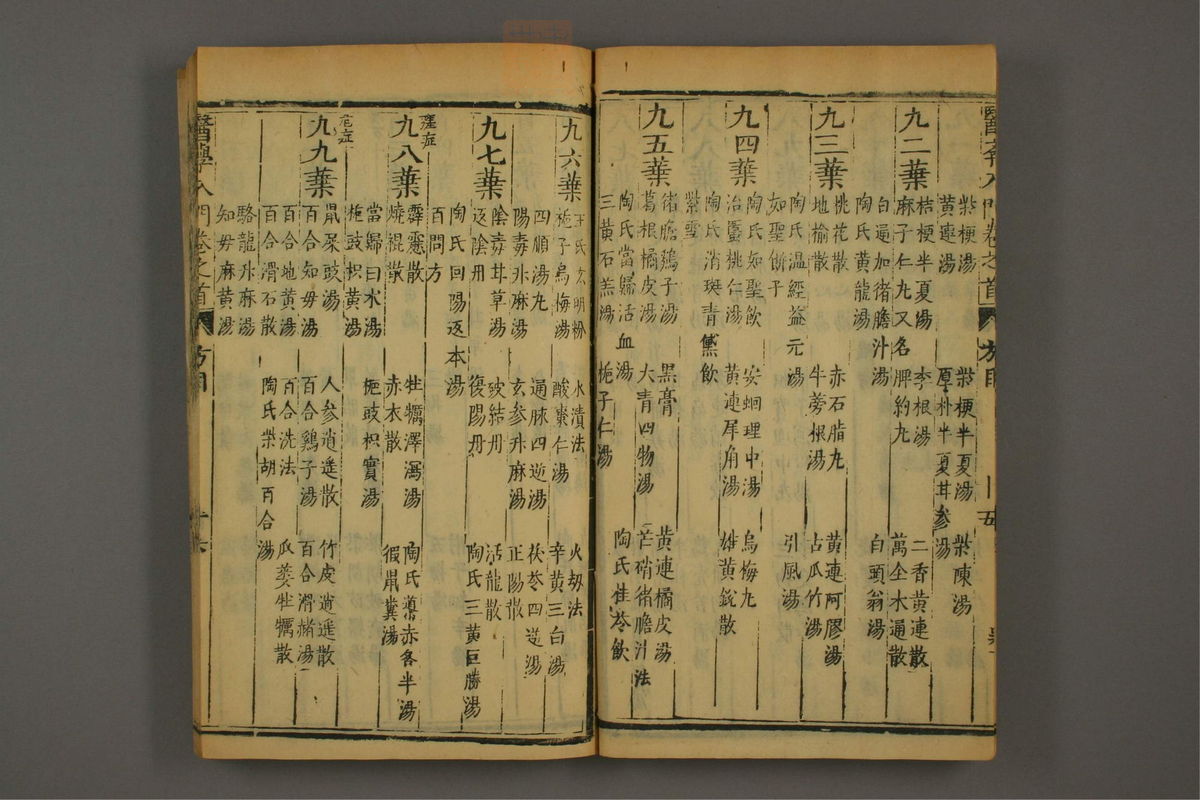 柴梗湯 柴梗半夏湯 柴陳湯
黃連湯 厚朴半夏甘參湯
九二葉
桔梗半夏湯 李根湯 二香黃連散
麻子仁丸又名脾約丸 萬全木通散
白通加猪膽汁湯 白頭翁湯
陶氏黃龍湯
九三葉
桃花散 赤石脂丸 黃連阿膠湯
地榆散 牛蒡根湯 占瓜竹湯
陶氏溫經益元湯 引風湯
如聖餅子
九四葉
陶氏知聖飲 安蛔理中湯 烏梅丸
治䘌桃仁湯 黃連犀角湯 雄黃銳散
陶氏消斑青黛飲
紫雪
九五葉
猪膽鷄子湯 黑膏 黃連橘皮湯
葛根橘皮湯 大青四物湯 芒硝猪膽汁法
陶氏當歸活血湯 陶氏桂苓飲
三黃石羔湯 梔子仁湯
九六葉
王氏玄明粉 水漬法 火劫法
梔子烏梅湯 酸棗仁湯 辛黃三白湯
四順湯丸 通脉四逆湯 茯苓四逆湯
陽毒升麻湯 玄參升麻湯 正陽散
九七葉
陰毒甘草湯 破結丹 活龍散
返陰丹 復陽丹 陶氏三黃巨勝湯
陶氏回陽返本湯
百問方
壞症
九八葉
霹靂散 牡蠣澤瀉湯 陶氏導赤各半湯
燒裩散 赤衣散 猳鼠糞湯
當歸白朮湯 梔豉枳實湯
梔豉枳黃湯
危症
九九葉
鼠屎豉湯 人參逍遙散 竹皮逍遙散
百合知母湯 百合鷄子湯 百合滑赭湯
百合地黃湯 百合洗法 瓜蔞牡蠣散
百合滑石散 陶氏柴胡百合湯
駱龍升麻湯
知母麻黃湯
醫學入門卷之首 方目